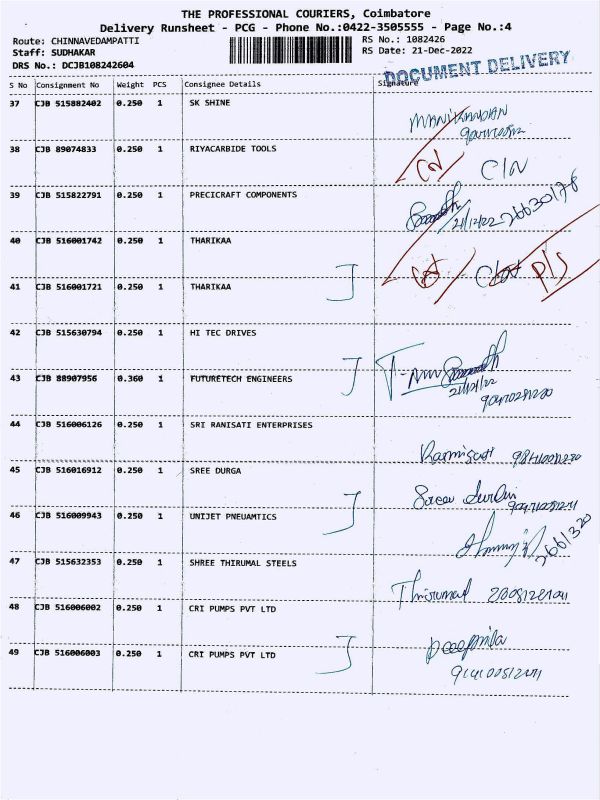 THE PROFESSIONAL COURIERS, Coimbatore
Delivery Runsheet - PCG - Phone No.:0422-3505555 - Page No.:4
Route: CHINNAVEDAMPATTI RS No.: 1082426
Staff: SUDHAKAR RS Date: 21-Dec-2022
DRS No.: DCJB108242604
DOCUMENT DELIVERY
S No Consignment No Weight PCS Consignee Details Signature
37 CJB 515882402 0.250 1 SK SHINE
MANIKANDAN
38 CJB 89074833 0.250 1 RIYACARBIDE TOOLS
C/N
39 CJB 515822791 0.250 1 PRECICRAFT COMPONENTS
21/12/22 26630178
40 CJB 516001742 0.250 1 THARIKAA
P/S
41 CJB 516001721 0.250 1 THARIKAA
42 CJB 515630794 0.250 1 HI TEC DRIVES
43 CJB 88907956 0.360 1 FUTURETECH ENGINEERS
21/12/22
44 CJB 516006126 0.250 1 SRI RANISATI ENTERPRISES
45 CJB 516016912 0.250 1 SREE DURGA
46 CJB 516009943 0.250 1 UNIJET PNEUAMTICS
2661320
47 CJB 515632353 0.250 1 SHREE THIRUMAL STEELS
Thirumal
48 CJB 516006002 0.250 1 CRI PUMPS PVT LTD
49 CJB 516006003 0.250 1 CRI PUMPS PVT LTD